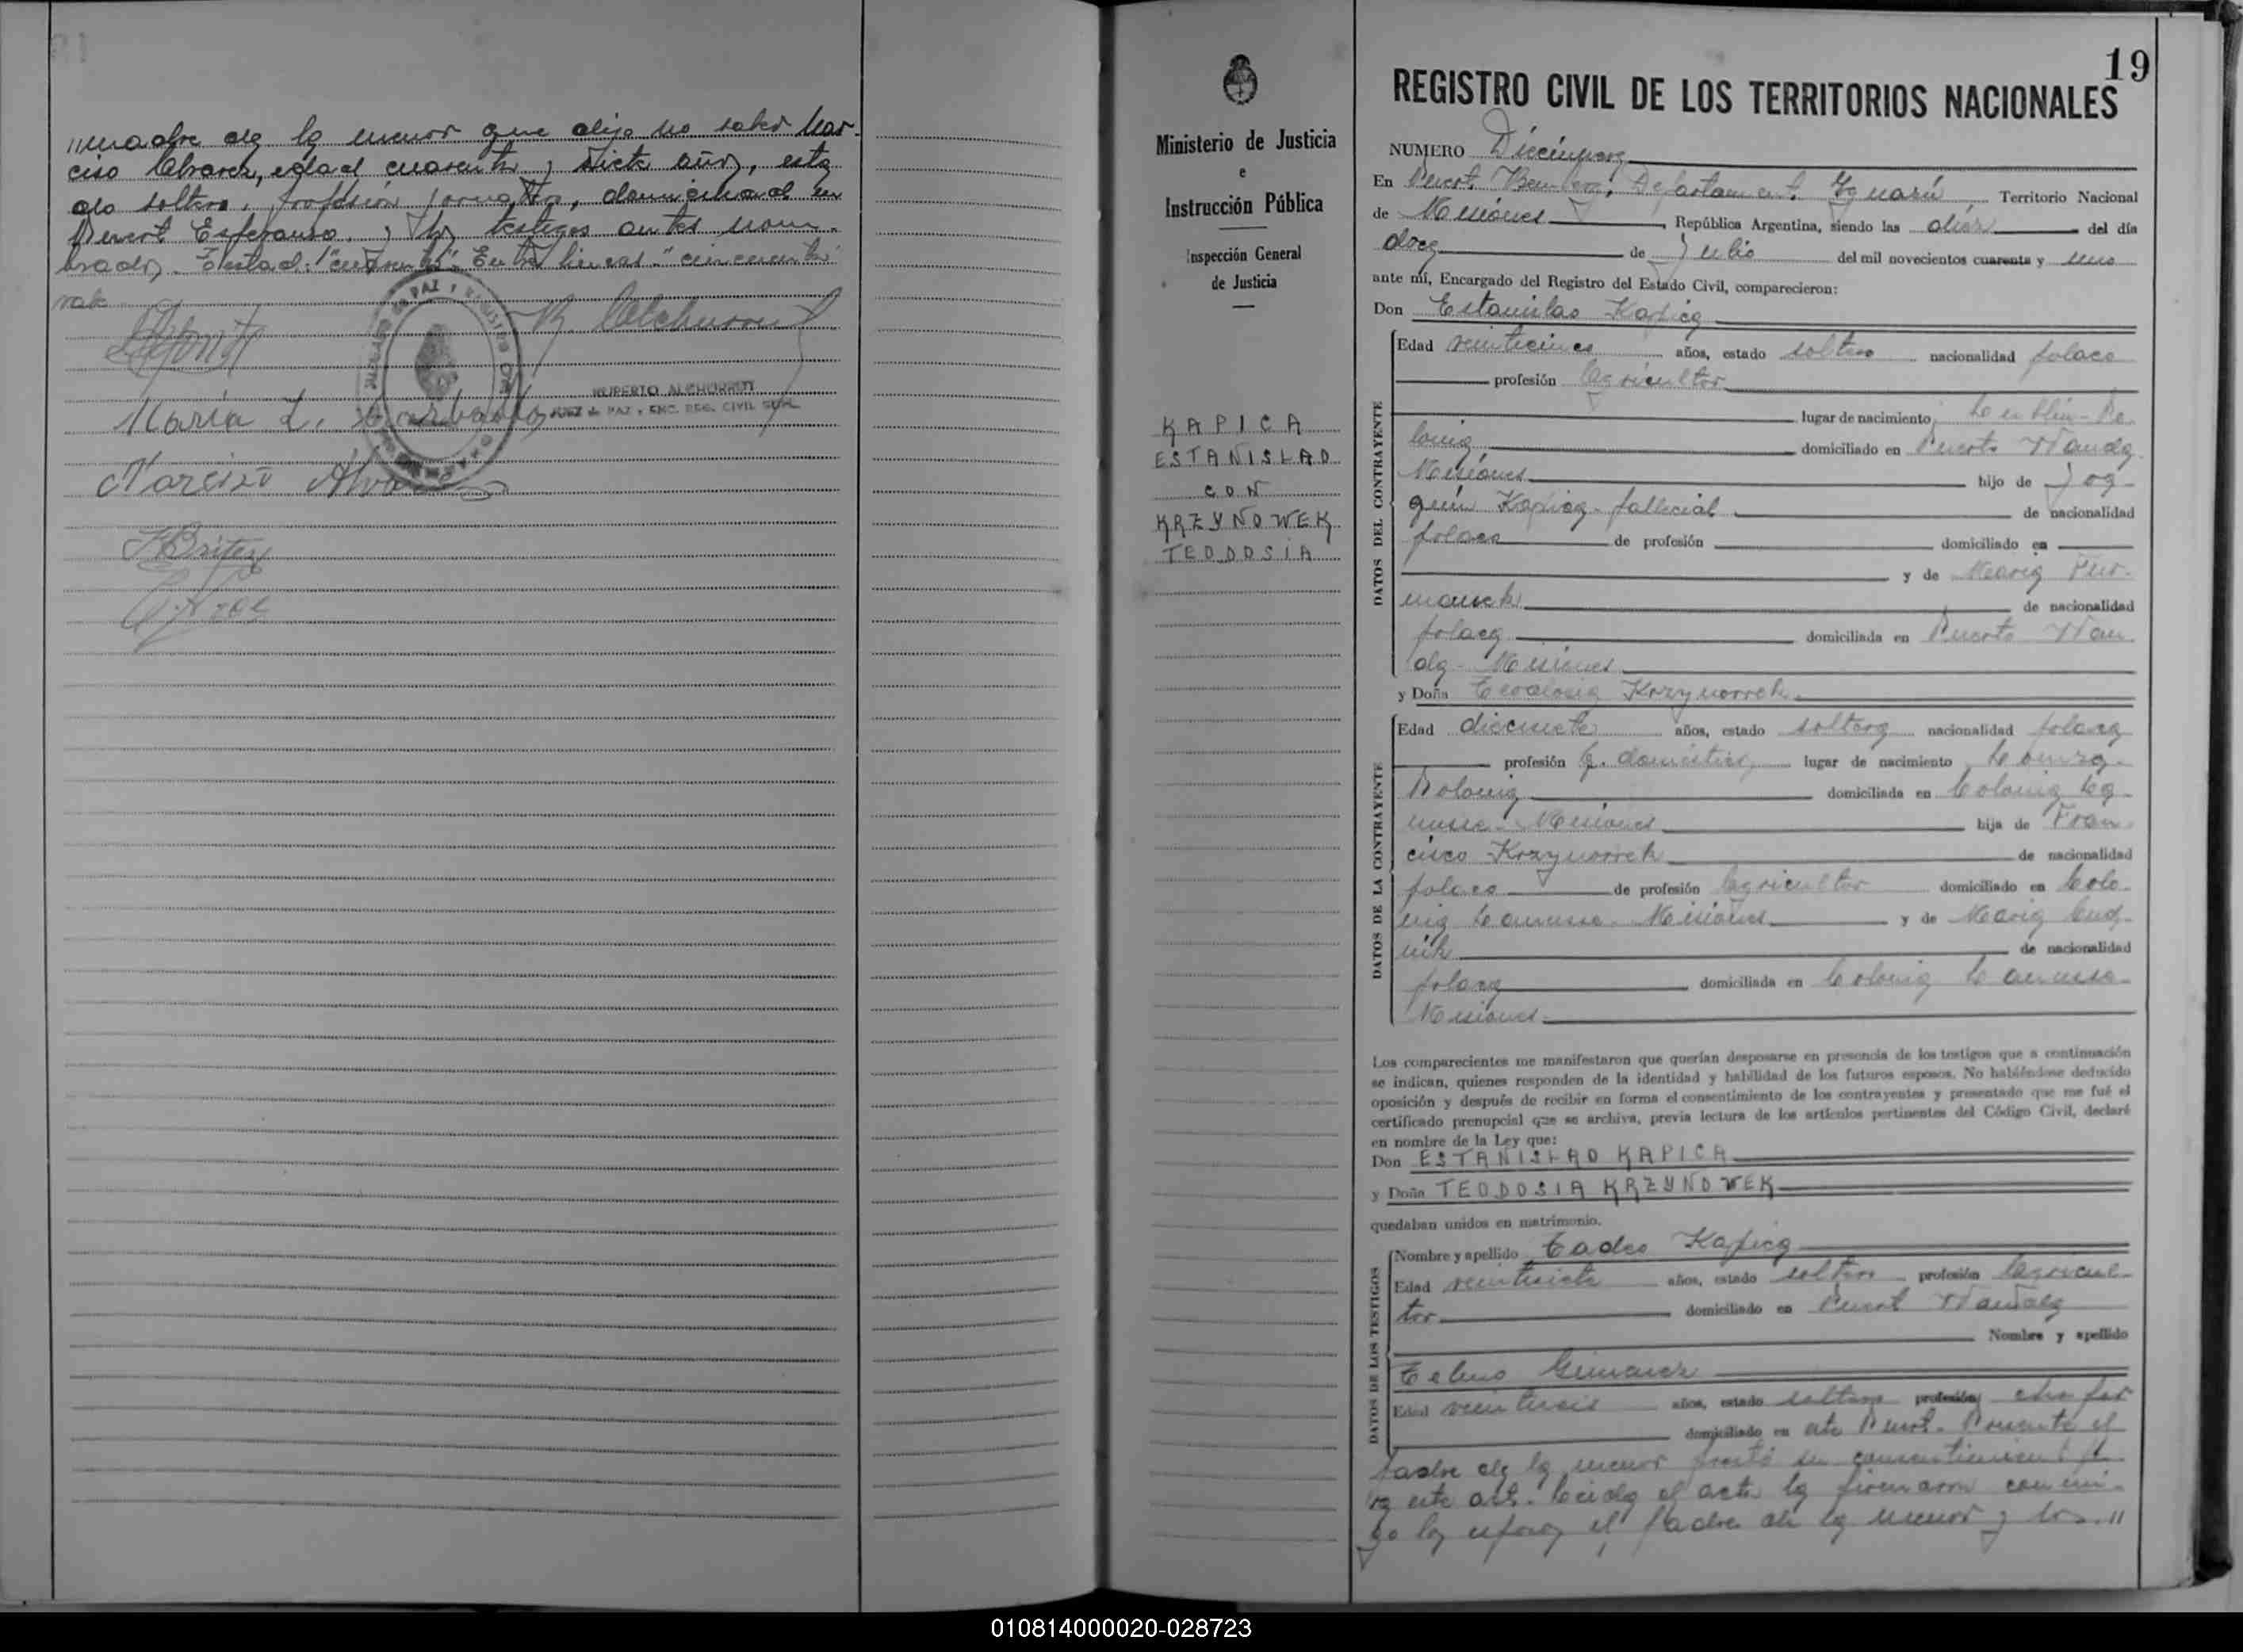 madre de la menor que dijo no saber Nar-
ciso Alvarez, edad cuarenta y siete años, esta
do soltero, profesión jornalero, domiciliado en
Puerto Esperanza, y los testigos antes nom-
brados. Testad: "cuarenta". Entre lineas: "cincuenta"
vale
R. Alchurrut
RUPERTO ALCHURRUT
JUEZ de PAZ y ENC. REG. CIVIL
JUZGADO DE PAZ Y REGISTRO CIVIL
Maria L.
Narciso Alvarez
Britez
19
Ministerio de Justicia
e
Instrucción Pública
Inspección General
de Justicia
KAPICA
ESTANISLAO
CON
KRZYNOWEK
TEODOSIA
REGISTRO CIVIL DE LOS TERRITORIOS NACIONALES
NUMERO Diecinueve
En Puerto Bemberg, Departamento Iguazú, Territorio Nacional
de Misiones, República Argentina, siendo las diez del día
doce de Julio del mil novecientos cuarenta y uno
ante mí, Encargado del Registro del Estado Civil, comparecieron:
Don Estanislao Kapica
DATOS DEL CONTRAYENTE
Edad veinticinco años, estado soltero nacionalidad polaco
profesión Agricultor
lugar de nacimiento Lublin-Po-
lonia domiciliado en Puerto Wanda
Misiones hijo de Joa-
quin Kapica-fallecido de nacionalidad
polaco de profesión domiciliado en
y de Maria
de nacionalidad
polaca domiciliada en Puerto Wan
da - Misiones
y Doña Teodosia Krzynowek
DATOS DE LA CONTRAYENTE
Edad diecisiete años, estado soltera nacionalidad polaca
profesión q. domésticos, lugar de nacimiento
Polonia domiciliada en Colonia La
Misiones hija de Fran-
cisco Krzynowek de nacionalidad
polaco de profesión Agricultor domiciliado en Colo-
nia Misiones y de Maria
de nacionalidad
polaca domiciliada en Colonia
Misiones
Los comparecientes me manifestaron que querían desposarse en presencia de los testigos que a continuación
se indican, quienes responden de la identidad y habilidad de los futuros esposos. No habiéndose deducido
oposición y después de recibir en forma el consentimiento de los contrayentes y presentado que me fué el
certificado prenupcial que se archiva, previa lectura de los artículos pertinentes del Código Civil, declaré
en nombre de la Ley que:
Don ESTANISLAO KAPICA
y Doña TEODOSIA KRZYNOWEK
quedaban unidos en matrimonio.
DATOS DE LOS TESTIGOS
Nombre y apellido Tadeo Kapica
Edad veintisiete años, estado soltero profesión Agricul-
tor domiciliado en Puerto Wanda
Nombre y apellido
Telmo Gimenez
Edad veintiseis años, estado soltero profesión chofer
domiciliado en este Puerto. Presente el
padre de la menor prestó su consentimiento pa
ra este acto. Leida el acta la firmaron conmi-
go los esposos, el padre de la menor y los //
010814000020-028723